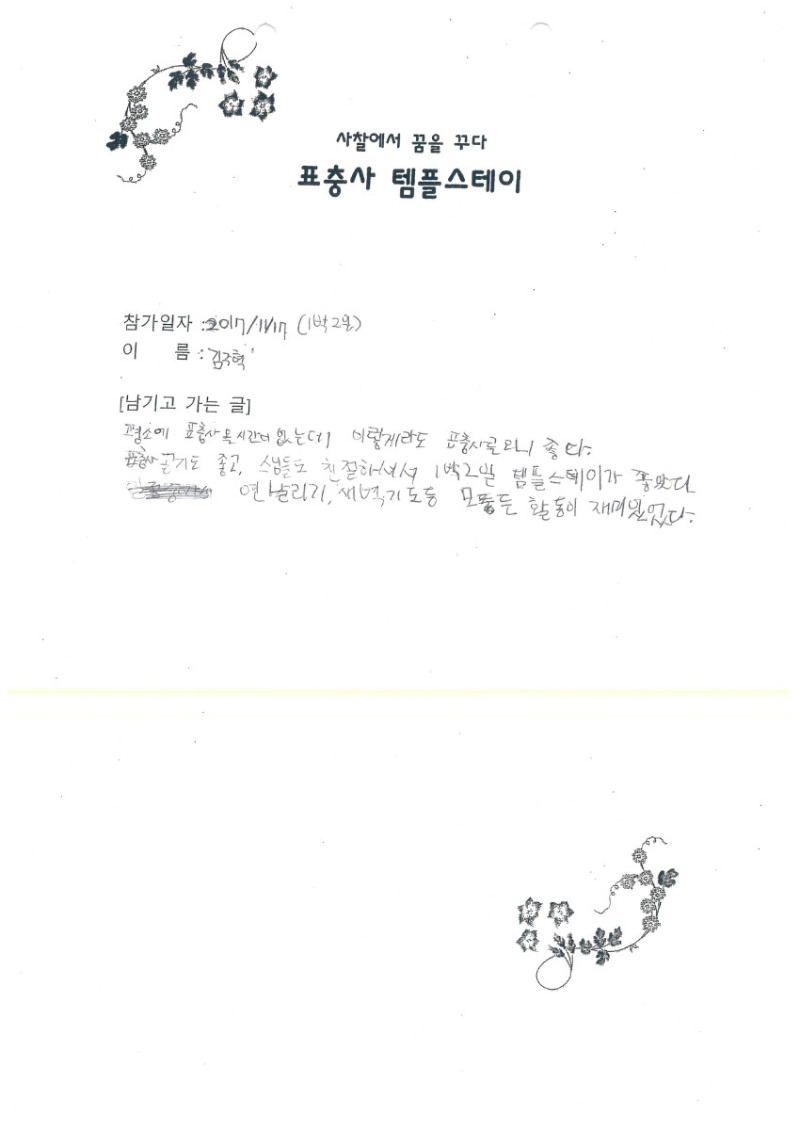 사찰에서 꿈을 꾸다
표충사 템플스테이
참가일자 : 2017/11/17 (1박2일)
이 름 : 김주혁
[남기고 가는 글]
평소에 표충사 올 시간이 없는데 이렇게라도 표충사로 오니 좋다.
표충사 공기도 좋고, 스님들도 친절하셔서 1박2일 템플스테이가 좋았다
연날리기, 새벽기도등 모든 활동이 재미있었다.